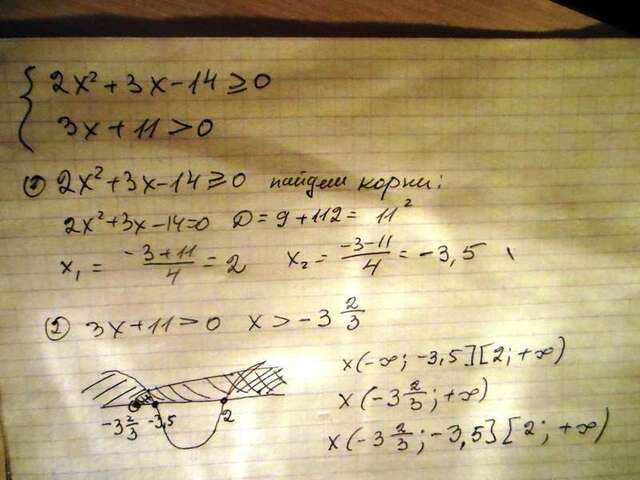 { 2x² + 3x - 14 ≥ 0
3x + 11 > 0
① 2x² + 3x - 14 ≥ 0 найдем корни:
2x² + 3x - 14 = 0 D = 9 + 112 = 11²
x₁ = (-3+11)/4 = 2 x₂ = (-3-11)/4 = -3,5
② 3x + 11 > 0 x > -3 2/3
x (-∞; -3,5] [2; +∞)
x (-3 2/3; +∞)
x (-3 2/3; -3,5] [2; +∞)
-3 2/3 -3,5 2